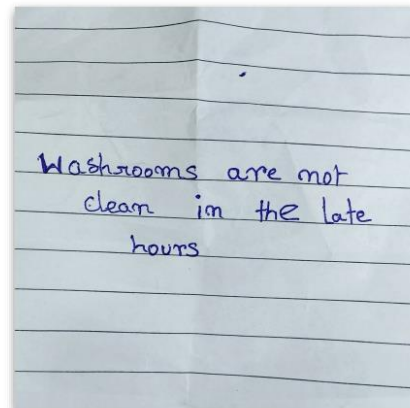 Washrooms are not
clean in the late
hours